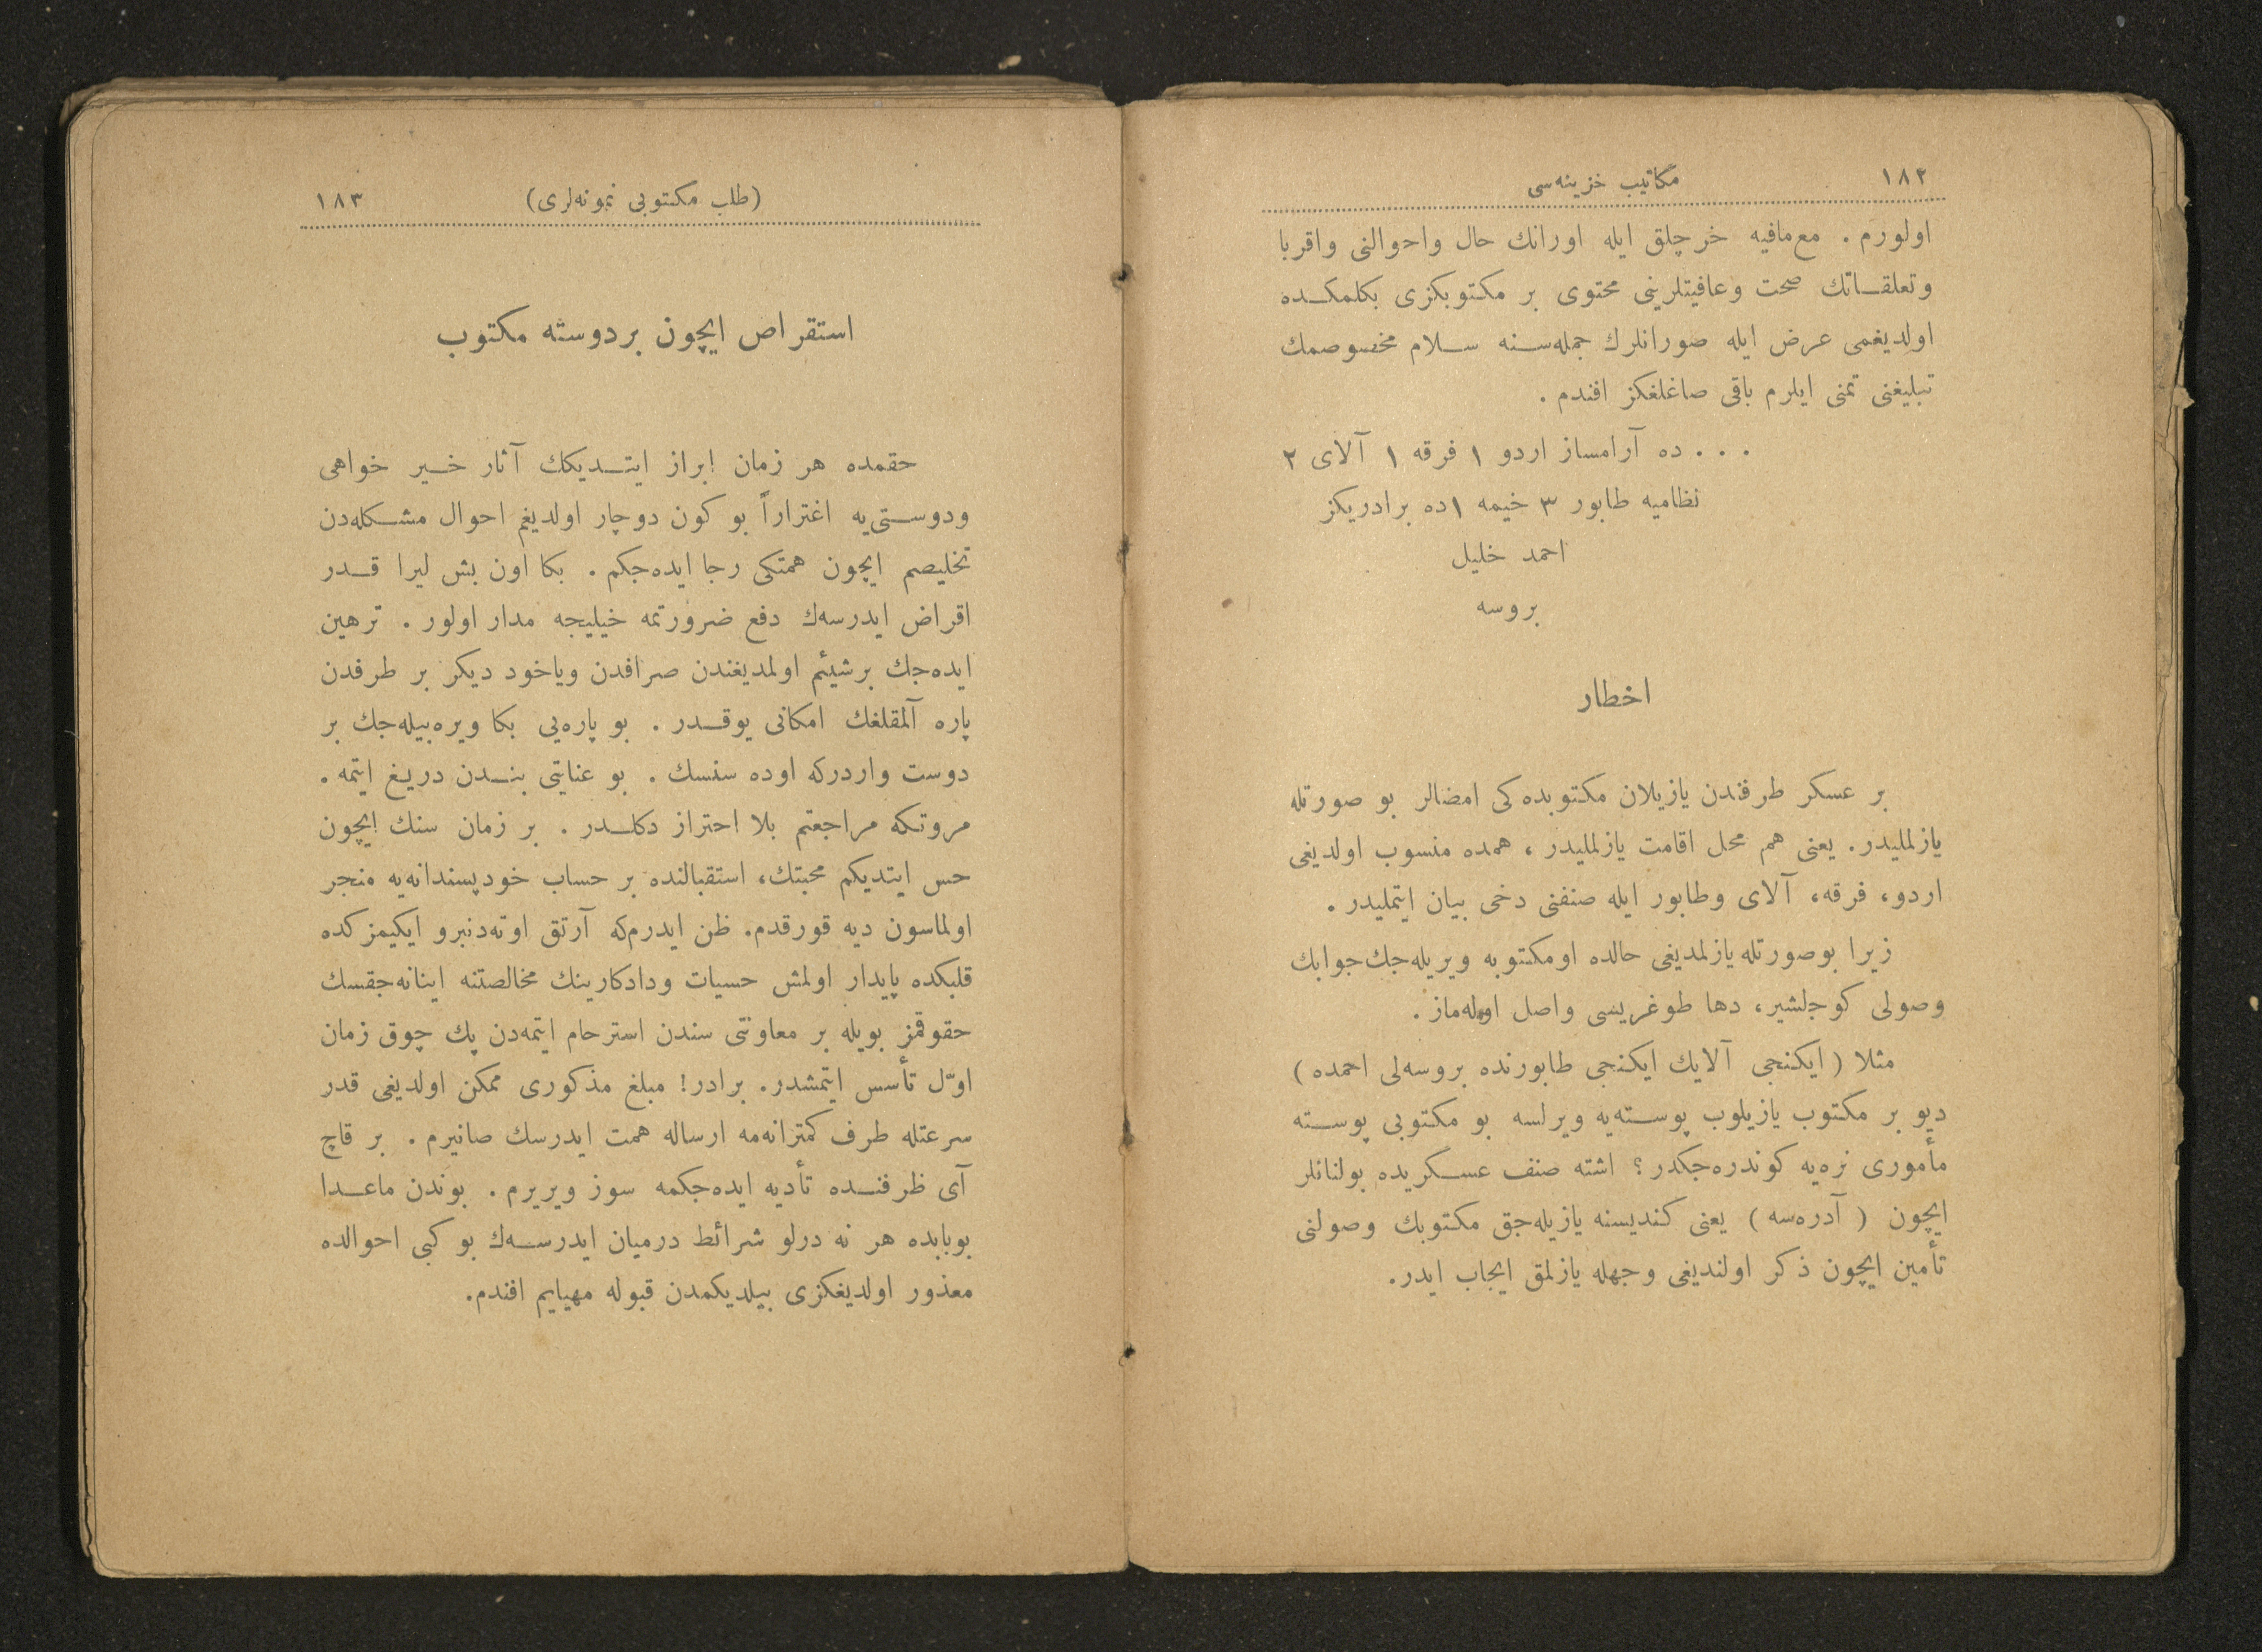 ١٨٢
مكاتیب خزینه‌سی
اولورم . مع‌مافیه خرچلق ایله اورانك حال واحوالنی واقربا
وتعلقـاتك صحت وعافیتلرینی محتوی بر مكتوبكزی بكلمكـده
اولدیغمی عرض ایله صورانلرك جمله‌سنه سـلام مخصوصمك
تبلیغنی تمنی ایلرم باقی صاغلغكز افندم .
. . . ده آرامساز اردو ١ فرقه ١ آلای ٢
نظامیه طابور ٣ خیمه ١ده برادریكز
احمد خلیل
بروسه
اخطار
بر عسكر طرفندن یازیلان مكتوبده‌كی امضالر بو صورتله
یازلملیدر. یعنی هم محل اقامت یازلملیدر ، همده منسوب اولدیغی
اردو، فرقه، آلای وطابور ایله صنفنی دخی بیان ایتملیدر .
زیرا بوصورتله یازلمدیغی حالده اومكتوبه ویریله‌جك جوابك
وصولی كوجلشیر، دها طوغریسی واصل اوله‌ماز .
مثلا ( ایكنجی آلایك ایكنجی طابورنده بروسه‌لی احمده )
دیو بر مكتوب یازیلوب پوسـته‌یه ویرلسه بو مكتوبی پوسـته
مأموری نره‌یه كوندره‌جكدر ؟ اشته صنف عسـكریده بولنانلر
ایچون ( آدره‌سه ) یعنی كندیسنه یازیله‌جق مكتوبك وصولنی
تأمین ایچون ذكر اولندیغی وجهله یازلمق ایجاب ایدر.
(طلب مكتوبی نمونه‌لری)
١٨٣
استقراض ایچون بردوسته مكتوب
حقمده هر زمان ابراز ایتـدیكك آثار خـیر خواهی
ودوسـتی‌یه اغتراراً بو كون دوچار اولدیغم احوال مشـكله‌دن
تخلیصم ایچون همتكی رجا ایده‌جكم . بكا اون بش لیرا قـدر
اقراض ایدرسه‌ك دفع ضرورتمه خیلیجه مدار اولور . ترهین
ایده‌جك برشیئم اولمدیغندن صرافدن ویاخود دیكر بر طرفدن
پاره آلمقلغك امكانی یوقـدر . بو پاره‌یی بكا ویره‌بیله‌جك بر
دوست واردركه اوده سنسك . بو عنایتی بنـدن دریـغ ایتمه .
مروتكه مراجعتم بلا احتراز دكلـدر . بر زمان سنك ایچون
حس ایتدیكم محبتك، استقبالنده بر حساب خودپسندانه‌یه منجر
اولماسون دیه قورقدم. ظن ایدرم‌كه آرتق اوته‌دنبرو ایكیمزكده
قلبكده پایدار اولمش حسیات ودادكارینك مخالصتنه اینانه‌جقسك
حقوقمز بویله بر معاونتی سندن استرحام ایتمه‌دن پك چوق زمان
اوّل تأسس ایتمشدر. برادر! مبلغ مذكوری ممكن اولدیغی قدر
سرعتله طرف كمترانه‌مه ارساله همت ایدرسك صانیرم . بر قاچ
آی ظرفنـده تأدیه ایده‌جكمه سوز ویریرم . بوندن ماعـدا
بوبابده هر نه درلو شرائط درمیان ایدرسـه‌ك بو كبی احوالده
معذور اولدیغكزی بیلدیكمدن قبوله مهیایم افندم.